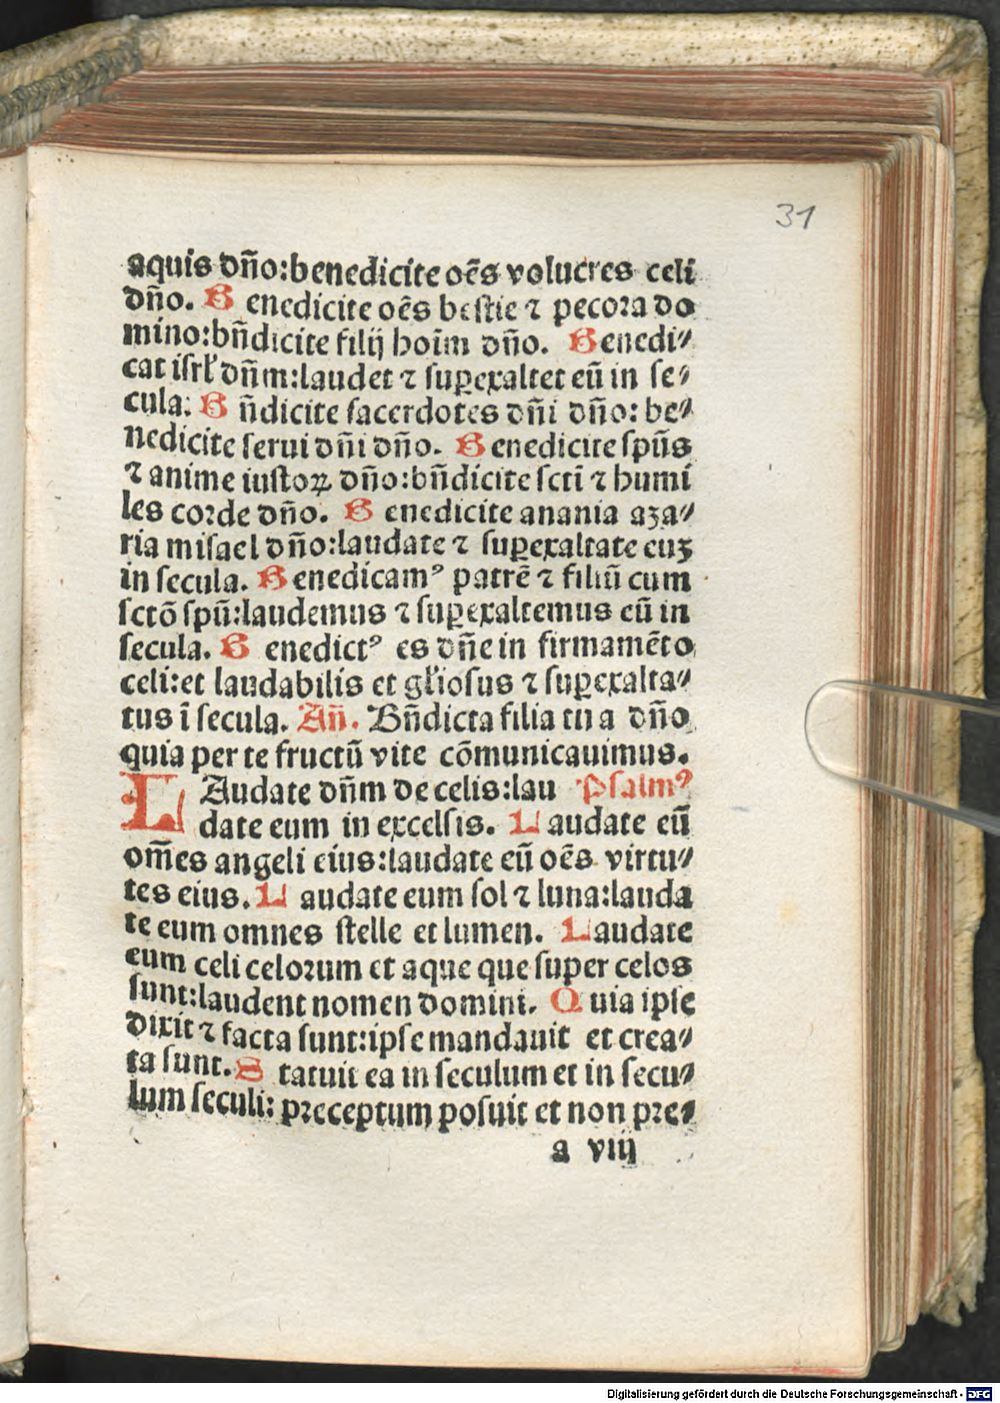 31
aquis dn̄o:benedicite oēs volucres celi
dn̄o. Benedicite oēs bestie ⁊ pecora do
mino:bn̄dicite filij hoīm dn̄o. Benedi⸗
cat isrl̄ dn̄m:laudet ⁊ suꝑexaltet eū in se⸗
cula. Bn̄dicite sacerdotes dn̄i dn̄o: be⸗
nedicite serui dn̄i dn̄o. Benedicite spūs
⁊ anime iustoꝝ dn̄o:bn̄dicite sctī ⁊ humi
les corde dn̄o. Benedicite anania aza⸗
ria misael dn̄o:laudate ⁊ suꝑexaltate euꝫ
in secula. Benedicamꝰ patrē ⁊ filiū cum
sctō spū:laudemus ⁊ suꝑexaltemus eū in
secula. Benedictꝰ es dn̄e in firmamēto
celi:et laudabilis et gl̄iosus ⁊ suꝑexalta⸗
tus ī secula. An̄. Bn̄dicta filia tu a dn̄o
quia per te fructū vite cōmunicauimus.
LAudate dn̄m de celis:lau Psalmꝰ
date eum in excelsis. Laudate eū
om̄es angeli eius:laudate eū oēs virtu⸗
tes eius. Laudate eum sol ⁊ luna:lauda
te eum omnes stelle et lumen. Laudate
eum celi celorum et aque que super celos
sunt:laudent nomen domini. Quia ipse
dixit ⁊ facta sunt:ipse mandauit et crea⸗
ta sunt. Statuit ea in seculum et in secu⸗
lum seculi: preceptum posuit et non pre⸗
a viij
Digitalisierung gefördert durch die Deutsche Forschungsgemeinschaft - DFG